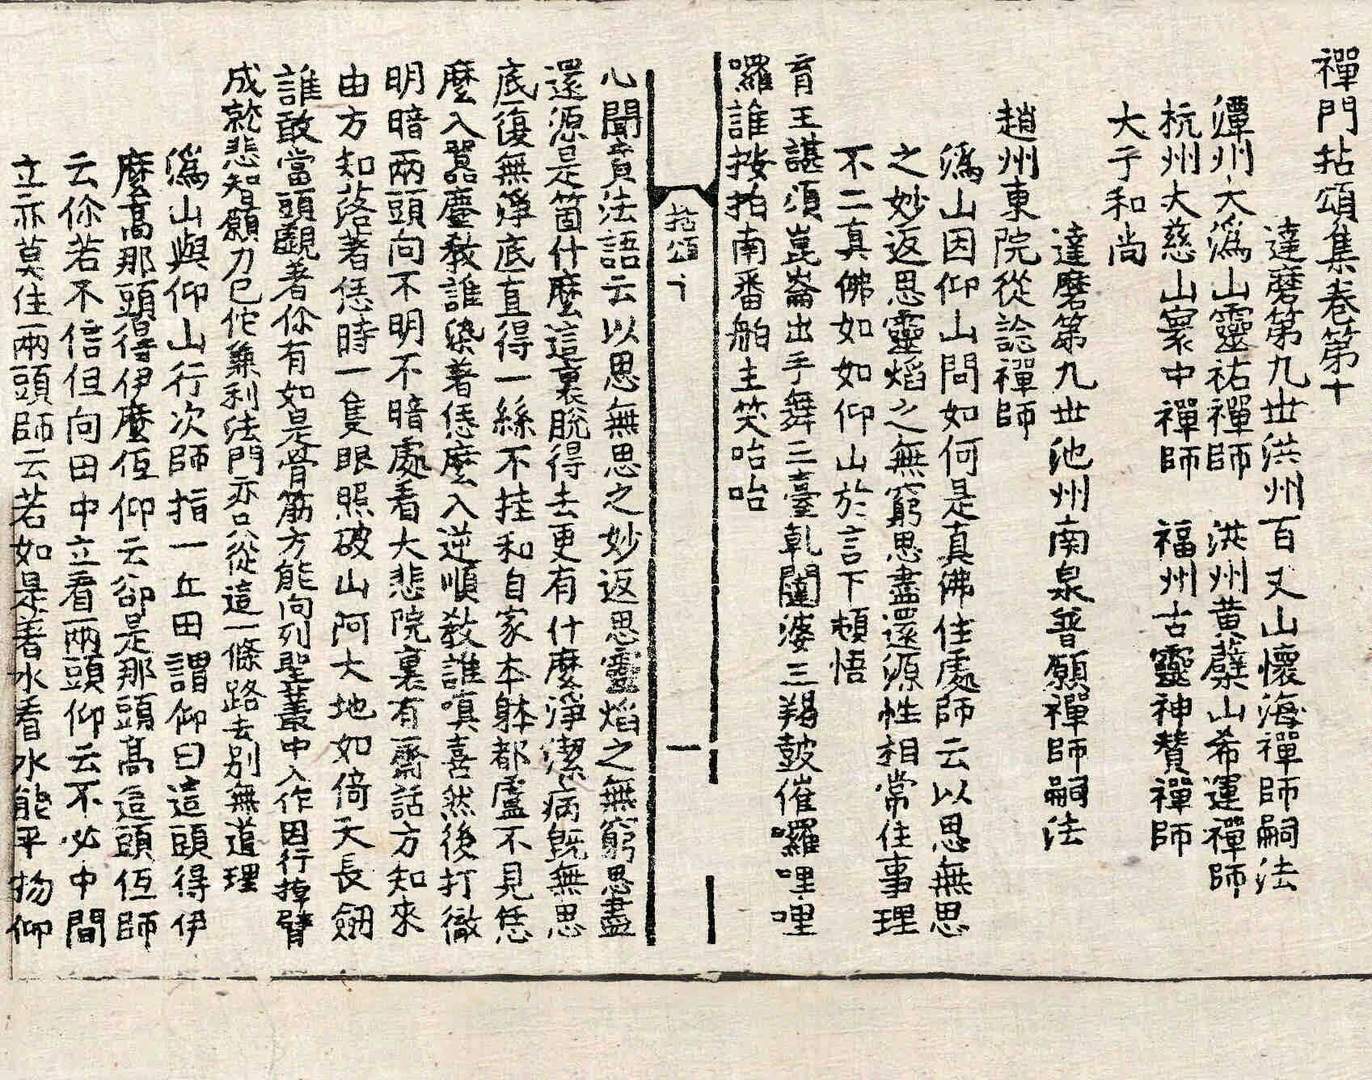 禪門拈頌集卷第十
達磨第九世洪州百丈山懷海禪師嗣法
潭州大溈山靈祐禪師　洪州黃蘗山希運禪師
杭州大慈山寰中禪師　福州古靈神贊禪師
大于和尚
達磨第九世池州南泉普願禪師嗣法
趙州東院從諗禪師
溈山因仰山問如何是真佛住處師云以思無思
之妙返思靈焰之無窮思盡還源性相常住事理
不二真佛如如仰山於言下頓悟
育王諶頌崑崙出手舞三臺乹闥婆三羯皷催囉哩哩
囉誰按拍南番舶主笑咍咍
拈頌十
一
心聞賁法語云以思無思之妙返思靈焰之無窮思盡
還源是箇什麼這裏脫得去更有什麼淨潔病旣無思
底復無淨底直得一絲不挂和自家本躰都盧不見恁
麼入嚣塵敎誰染著恁麼入逆順敎誰嗔喜然後打徹
明暗兩頭向不明不暗處看大悲院裏有齋話方知來
由方知落著恁時一隻眼照破山阿大地如倚天長劒
誰敢當頭覷著你有如是骨筋方能向列聖叢中入作因行掉臂
成就悲智願力已佗兼利法門亦只從這一條路去別無道理
溈山與仰山行次師指一丘田謂仰曰這頭得伊
麼高那頭得伊麼低仰云卻是那頭高這頭低師
云你若不信但向田中立看兩頭仰云不必中間
立亦莫住兩頭師云若如是著水看水能平物仰